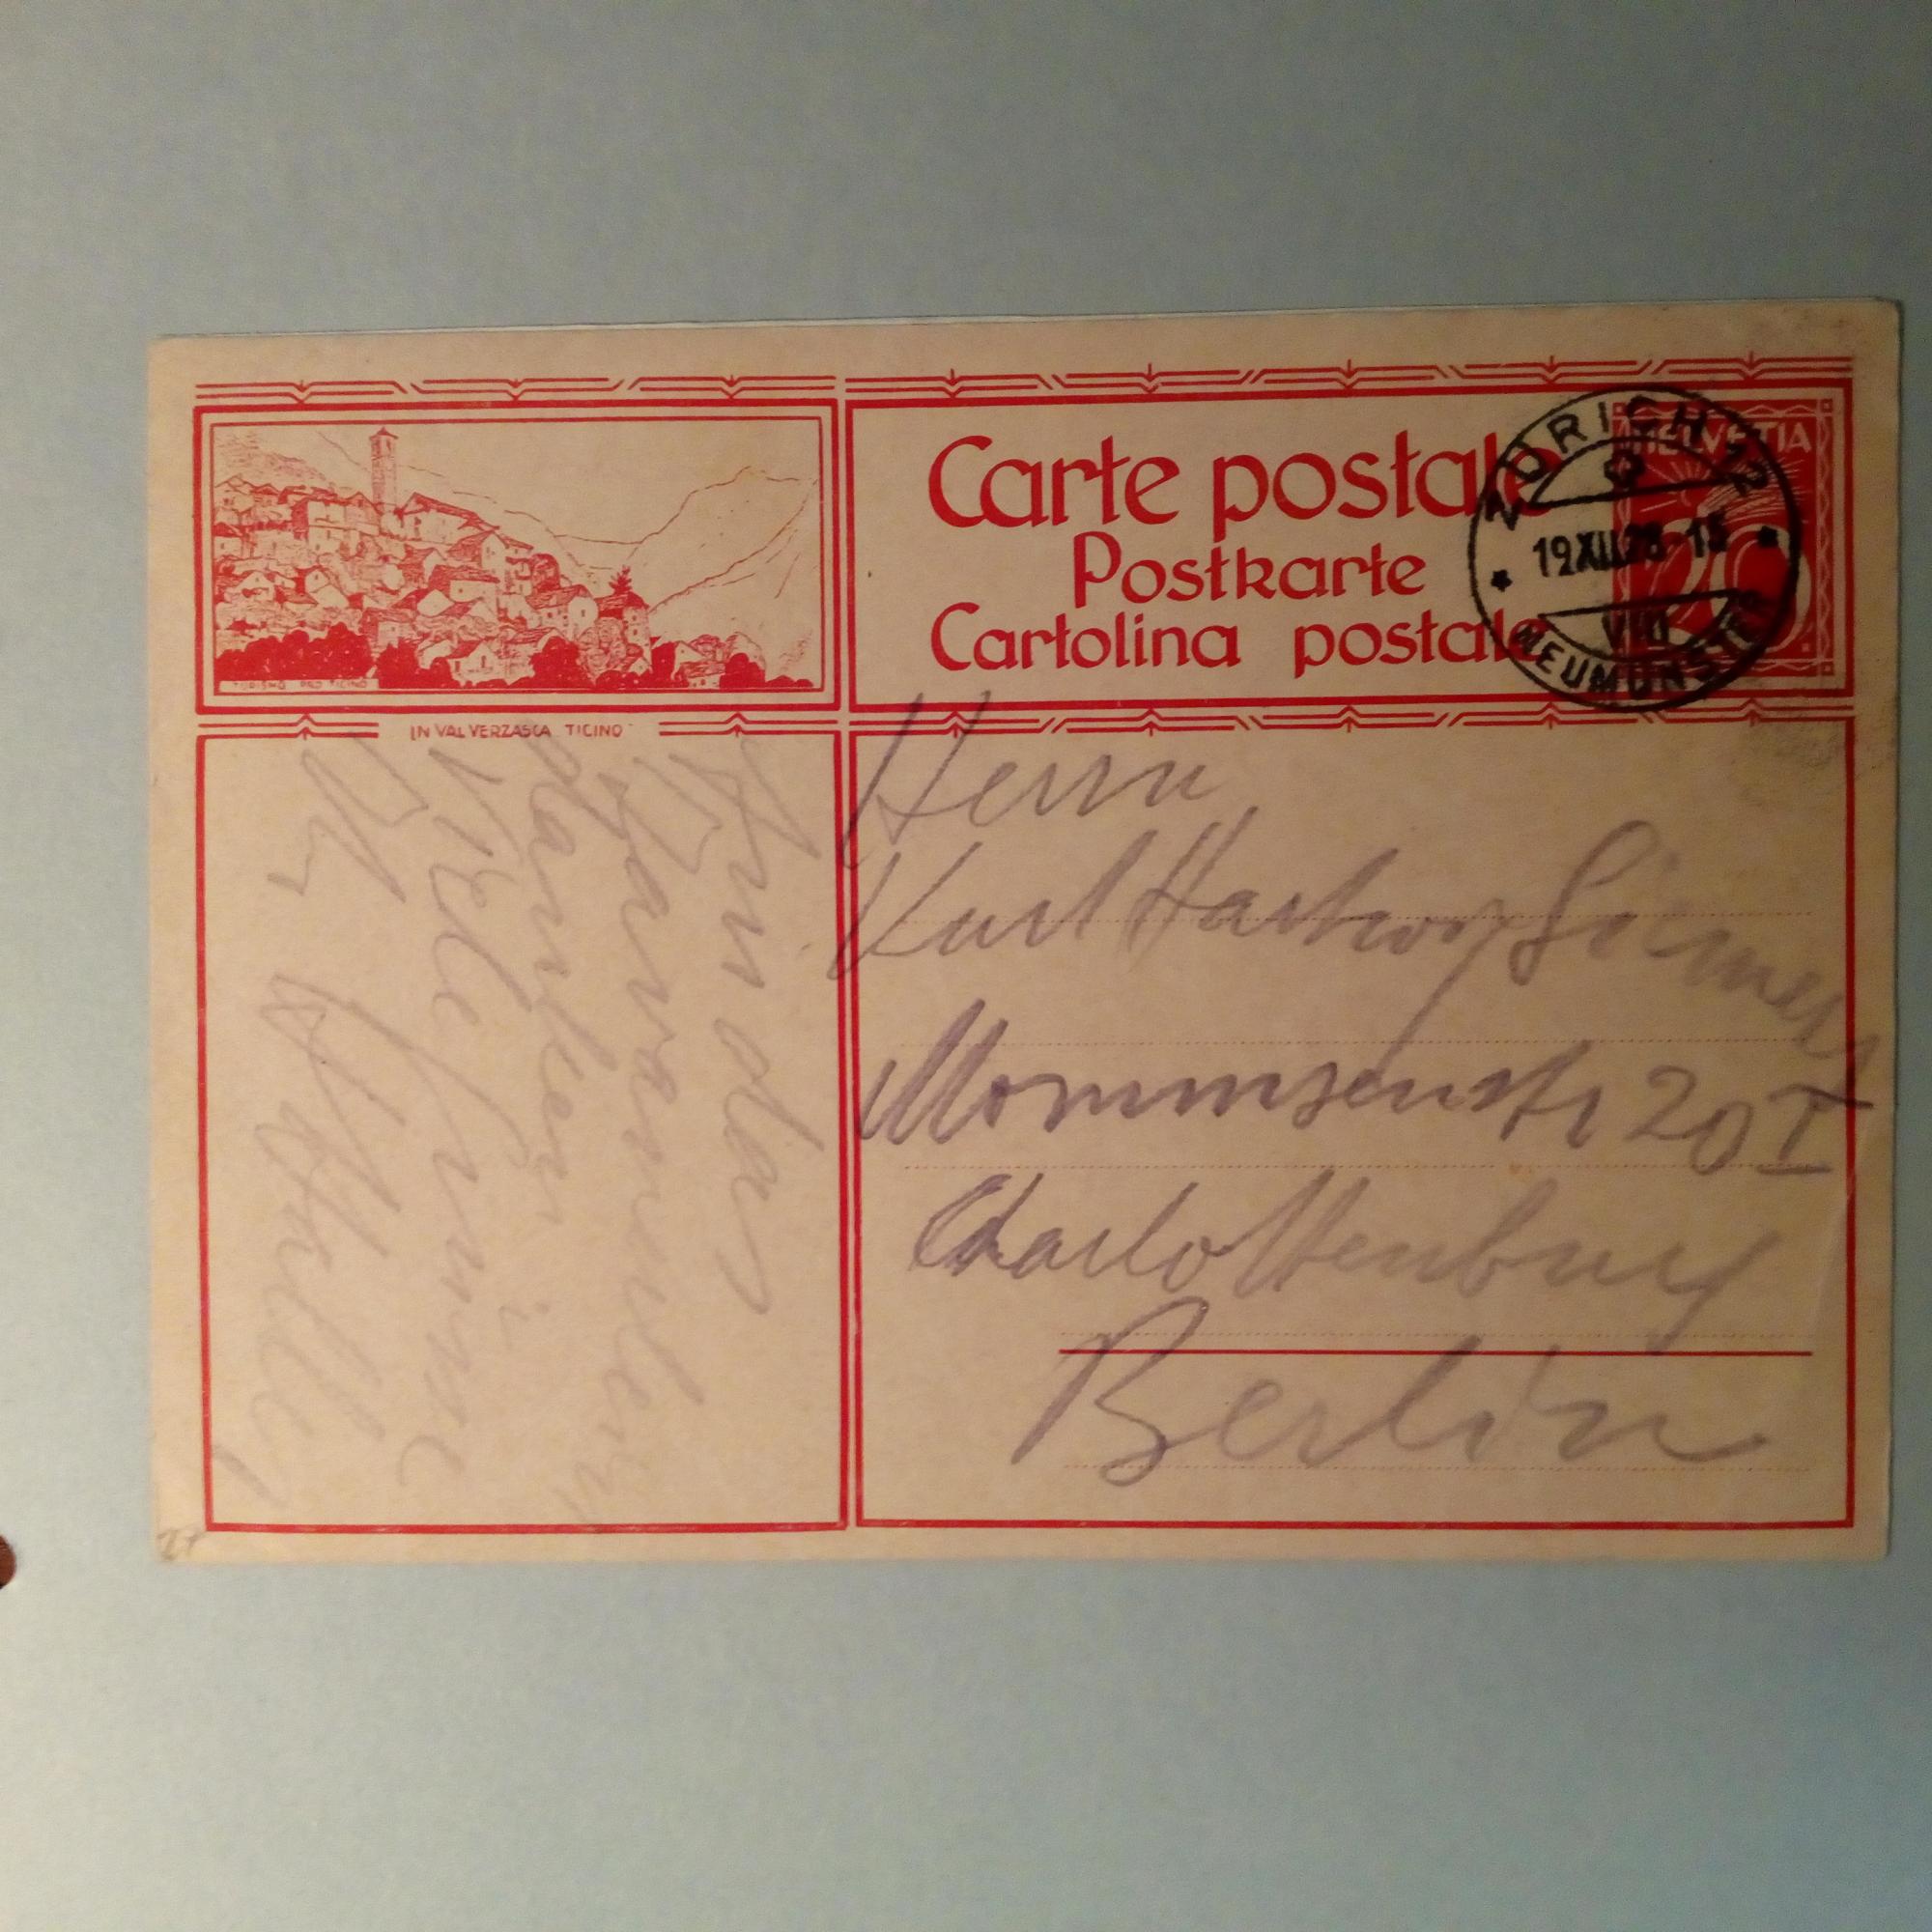 Carte postale
Postkarte
Cartolina postale
HELVETIA
20
ZÜRICH 12
19.XII.28-15
VIII
NEUMÜNSTER
TURISMO PRO TICINO
IN VAL VERZASCA TICINO
Herrn
Kurt Hartwig
Mommsenstr 20 I
Charlottenburg
Berlin
An das
danken
Viele Grüsse
Ihr
27